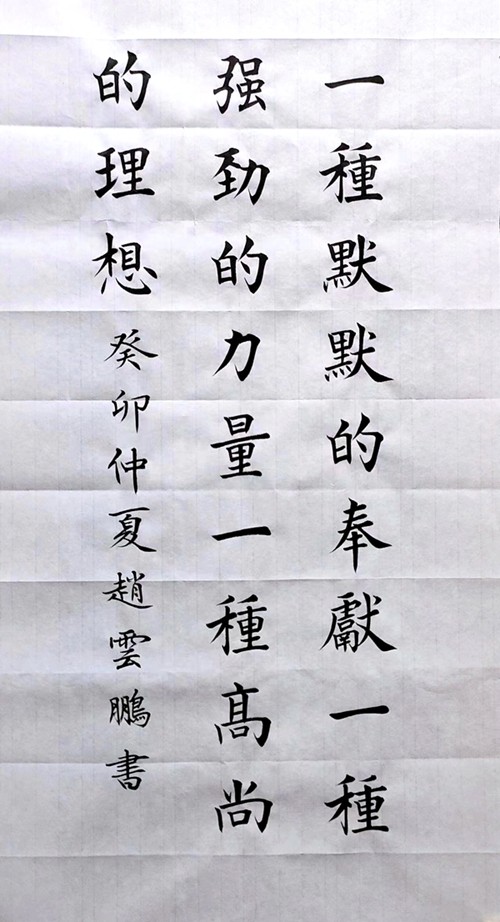 一種默默的奉獻一種
强劲的力量一種髙尚
的理想
癸卯仲夏趙雲鵬書